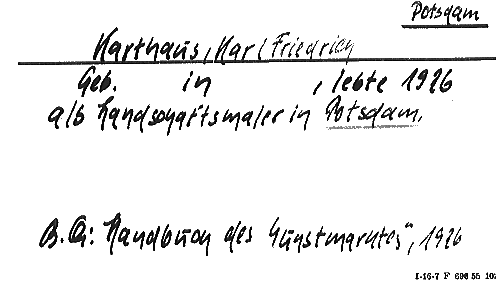 Potsdam
Karthaus, Karl Friedrich
Geb. in , lebte 1926
als Landschaftsmaler in Potsdam.
B.Q: Handbuch des Kunstmarktes", 1926
I-16-7 F 696 55